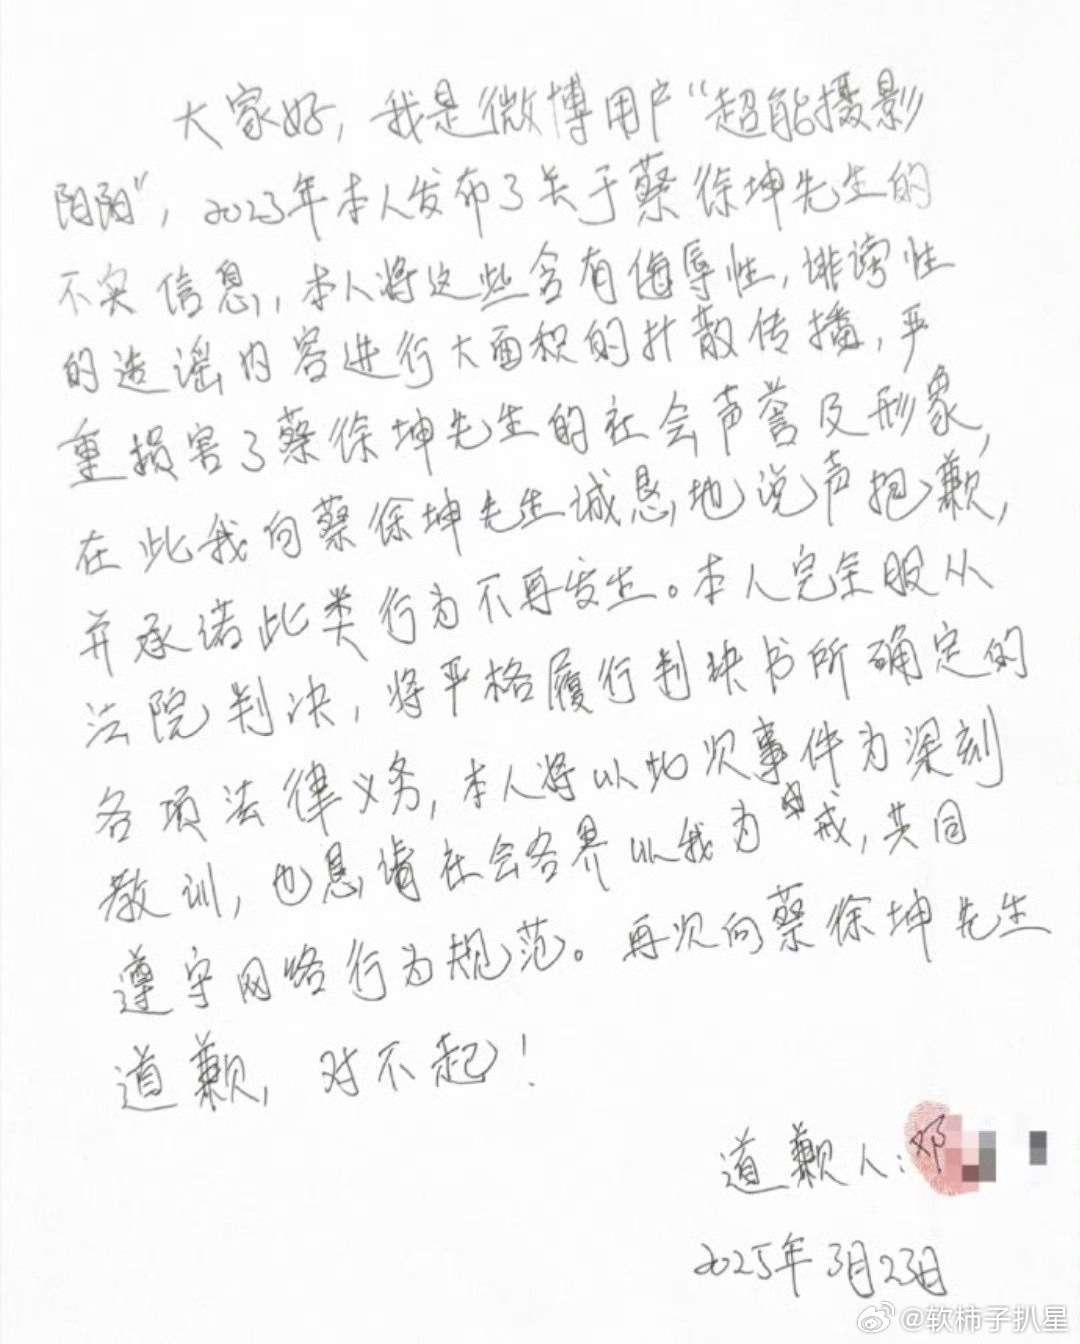 大家好，我是微博用户“超能摄影
阳阳”，2023年本人发布了关于蔡徐坤先生的
不实信息，本人将这些含有侮辱性，诽谤性
的造谣内容进行大面积的扩散传播，严
重损害了蔡徐坤先生的社会声誉及形象，
在此我向蔡徐坤先生诚恳地说声抱歉，
并承诺此类行为不再发生。本人完全服从
法院判决，将严格履行判决书所确定的
各项法律义务，本人将以此次事件为深刻
教训，也恳请社会各界以我为戒，共同
遵守网络行为规范。再次向蔡徐坤先生
道歉，对不起！
道歉人：邓
2025年3月23日
@软柿子扒星